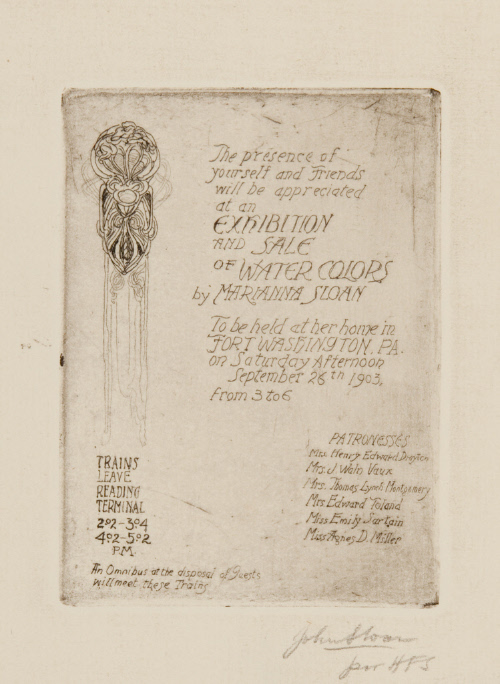 The presence of
yourself and Friends
will be appreciated
at an
EXHIBITION
AND SALE
OF WATER COLORS
by MARIANNA SLOAN
To be held at her home in
FORT WASHINGTON. PA.
on Saturday Afternoon
September 26th 1903,
From 3 to 6
PATRONESSES
Mrs. Henry Edward Drayton
Mrs. J Waln Vaux
Mrs. Thomas Lynch Montgomery
Mrs Edward Toland
Miss Emily Sartain
Miss Agnes D. Miller
TRAINS
LEAVE
READING
TERMINAL
202-304
402-502
P.M.
An Omnibus at the disposal of Guests
will meet these Trains
John Sloan
per HFS